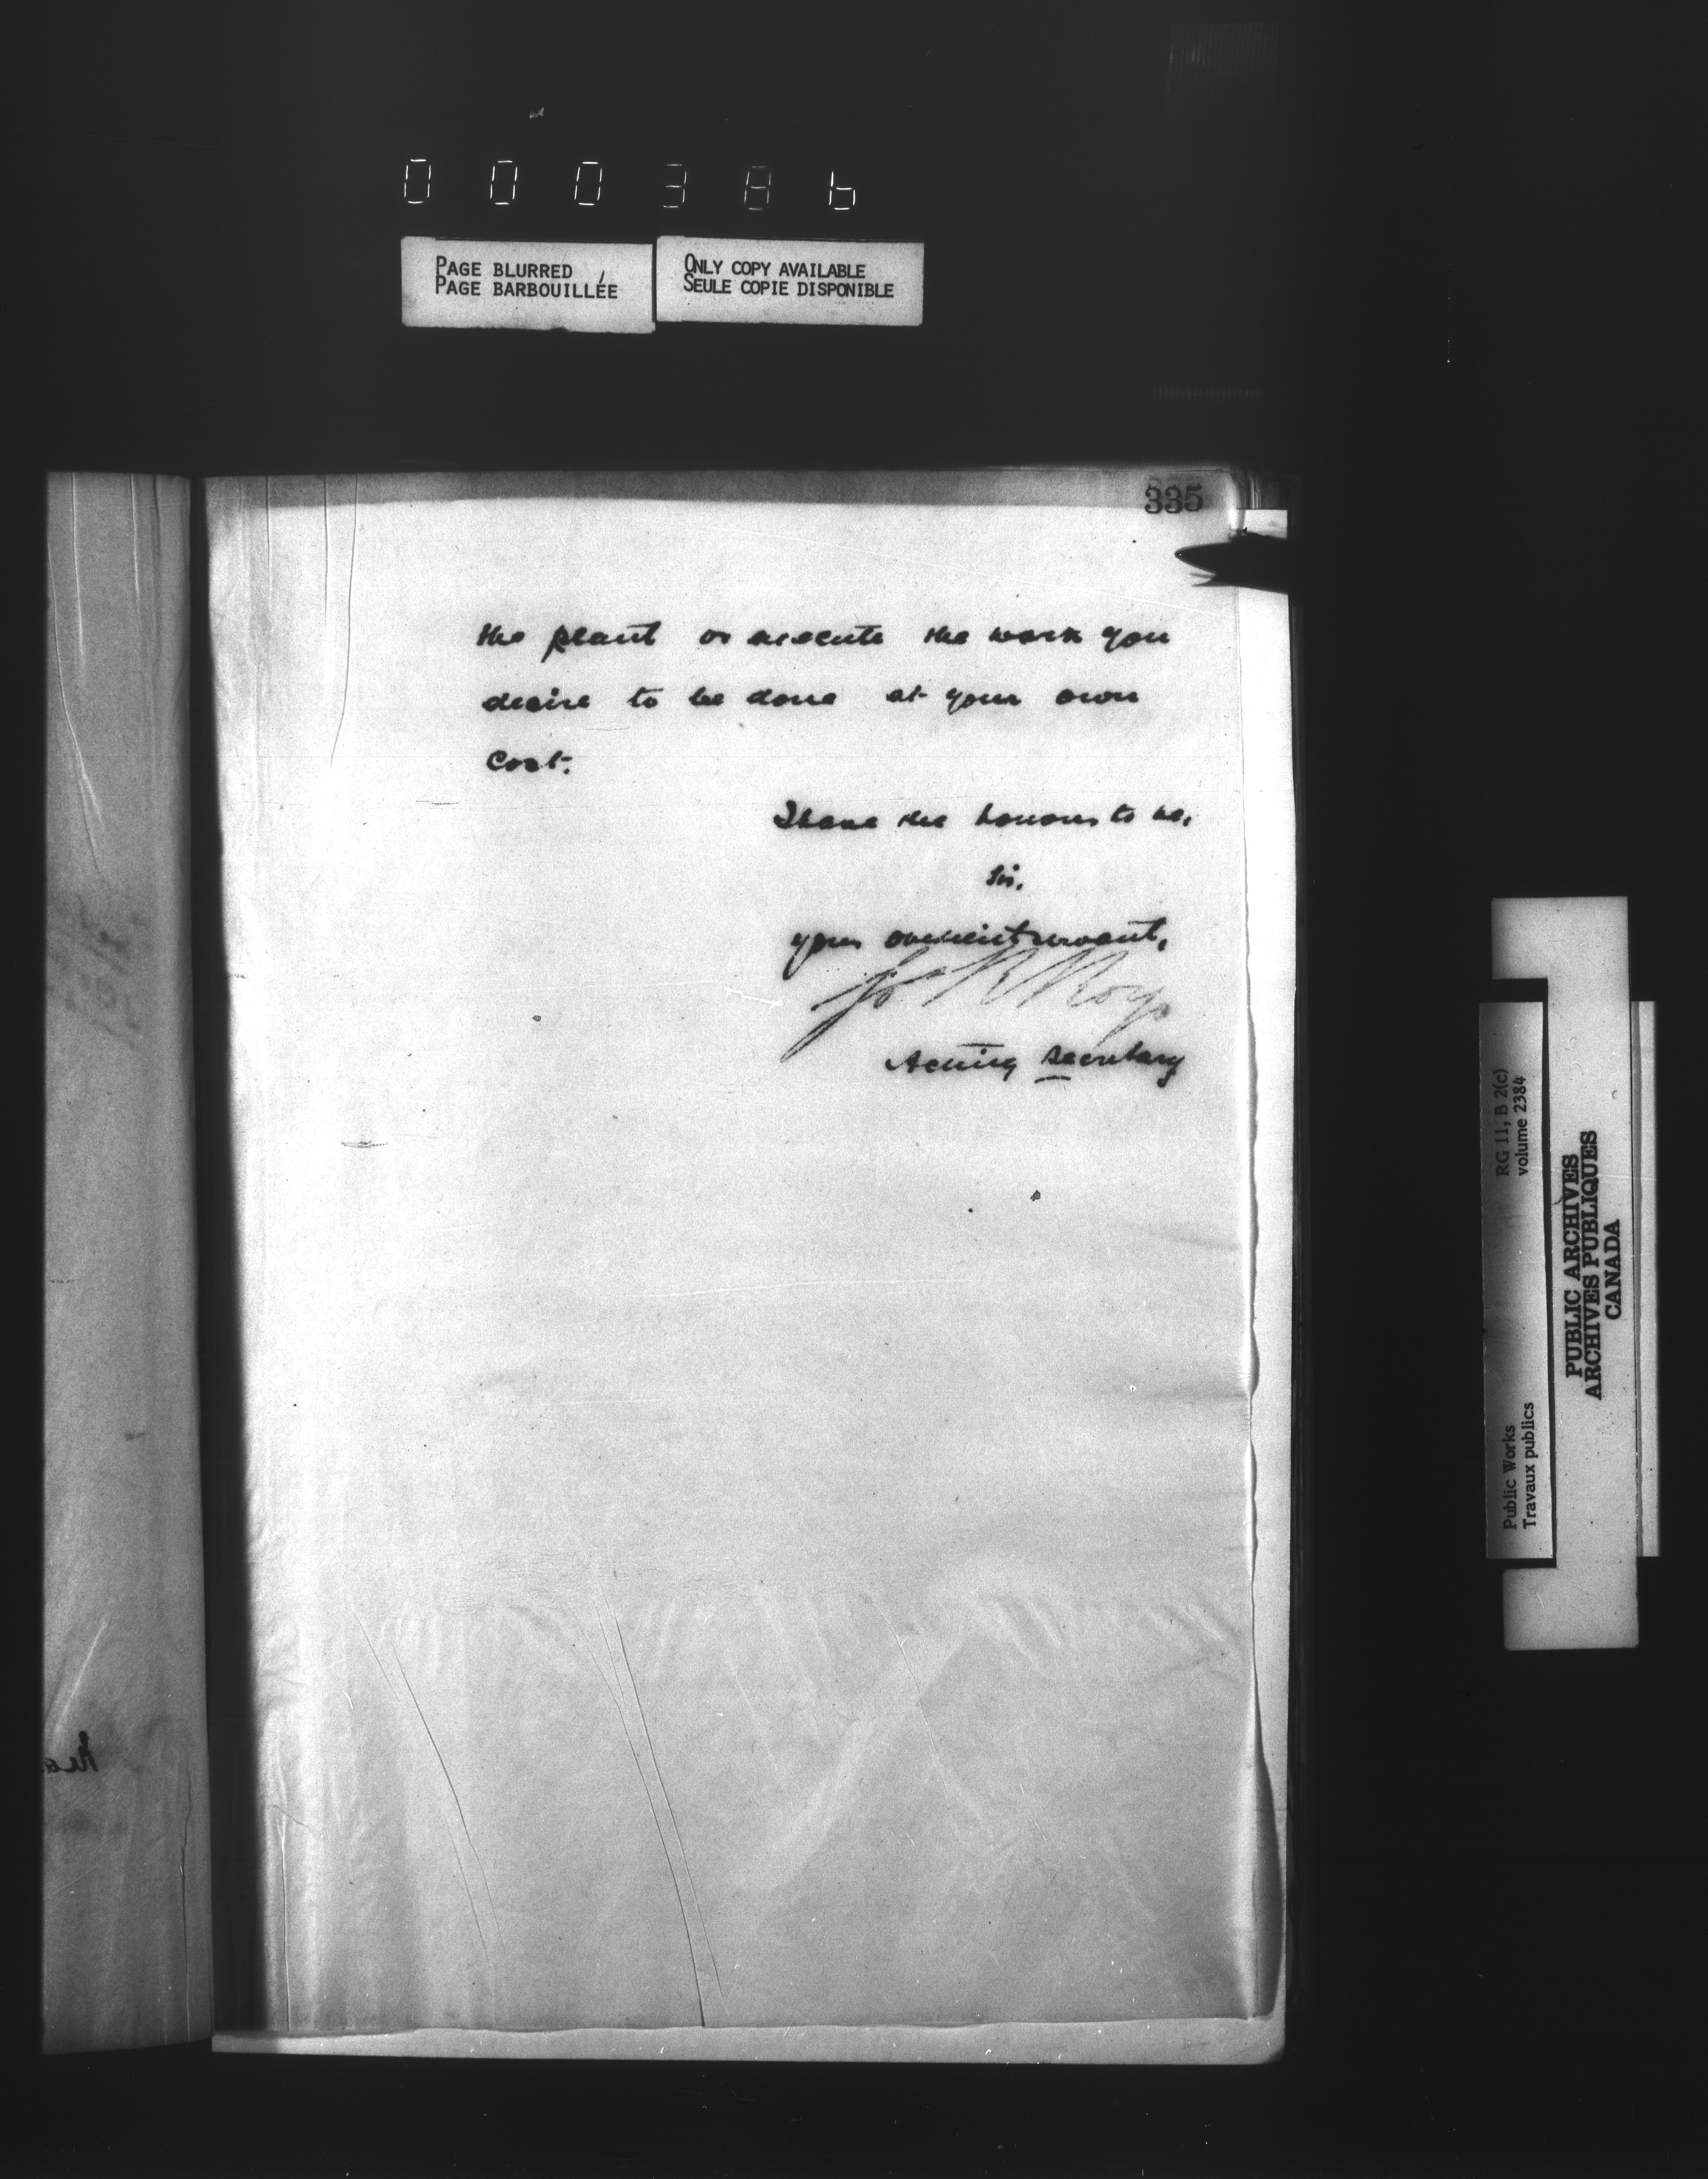 000386
PAGE BLURRED
PAGE BARBOUILLÉE
ONLY COPY AVAILABLE
SEULE COPIE DISPONIBLE
335
the plant or execute the work you
desire to be done at your own
cost.
I have the honour to be,
Sir,
your obedient servant,
R Roy
Acting Secretary
RG 11, B 2(c)
volume 2384
Public Works
Travaux publics
PUBLIC ARCHIVES
ARCHIVES PUBLIQUES
CANADA